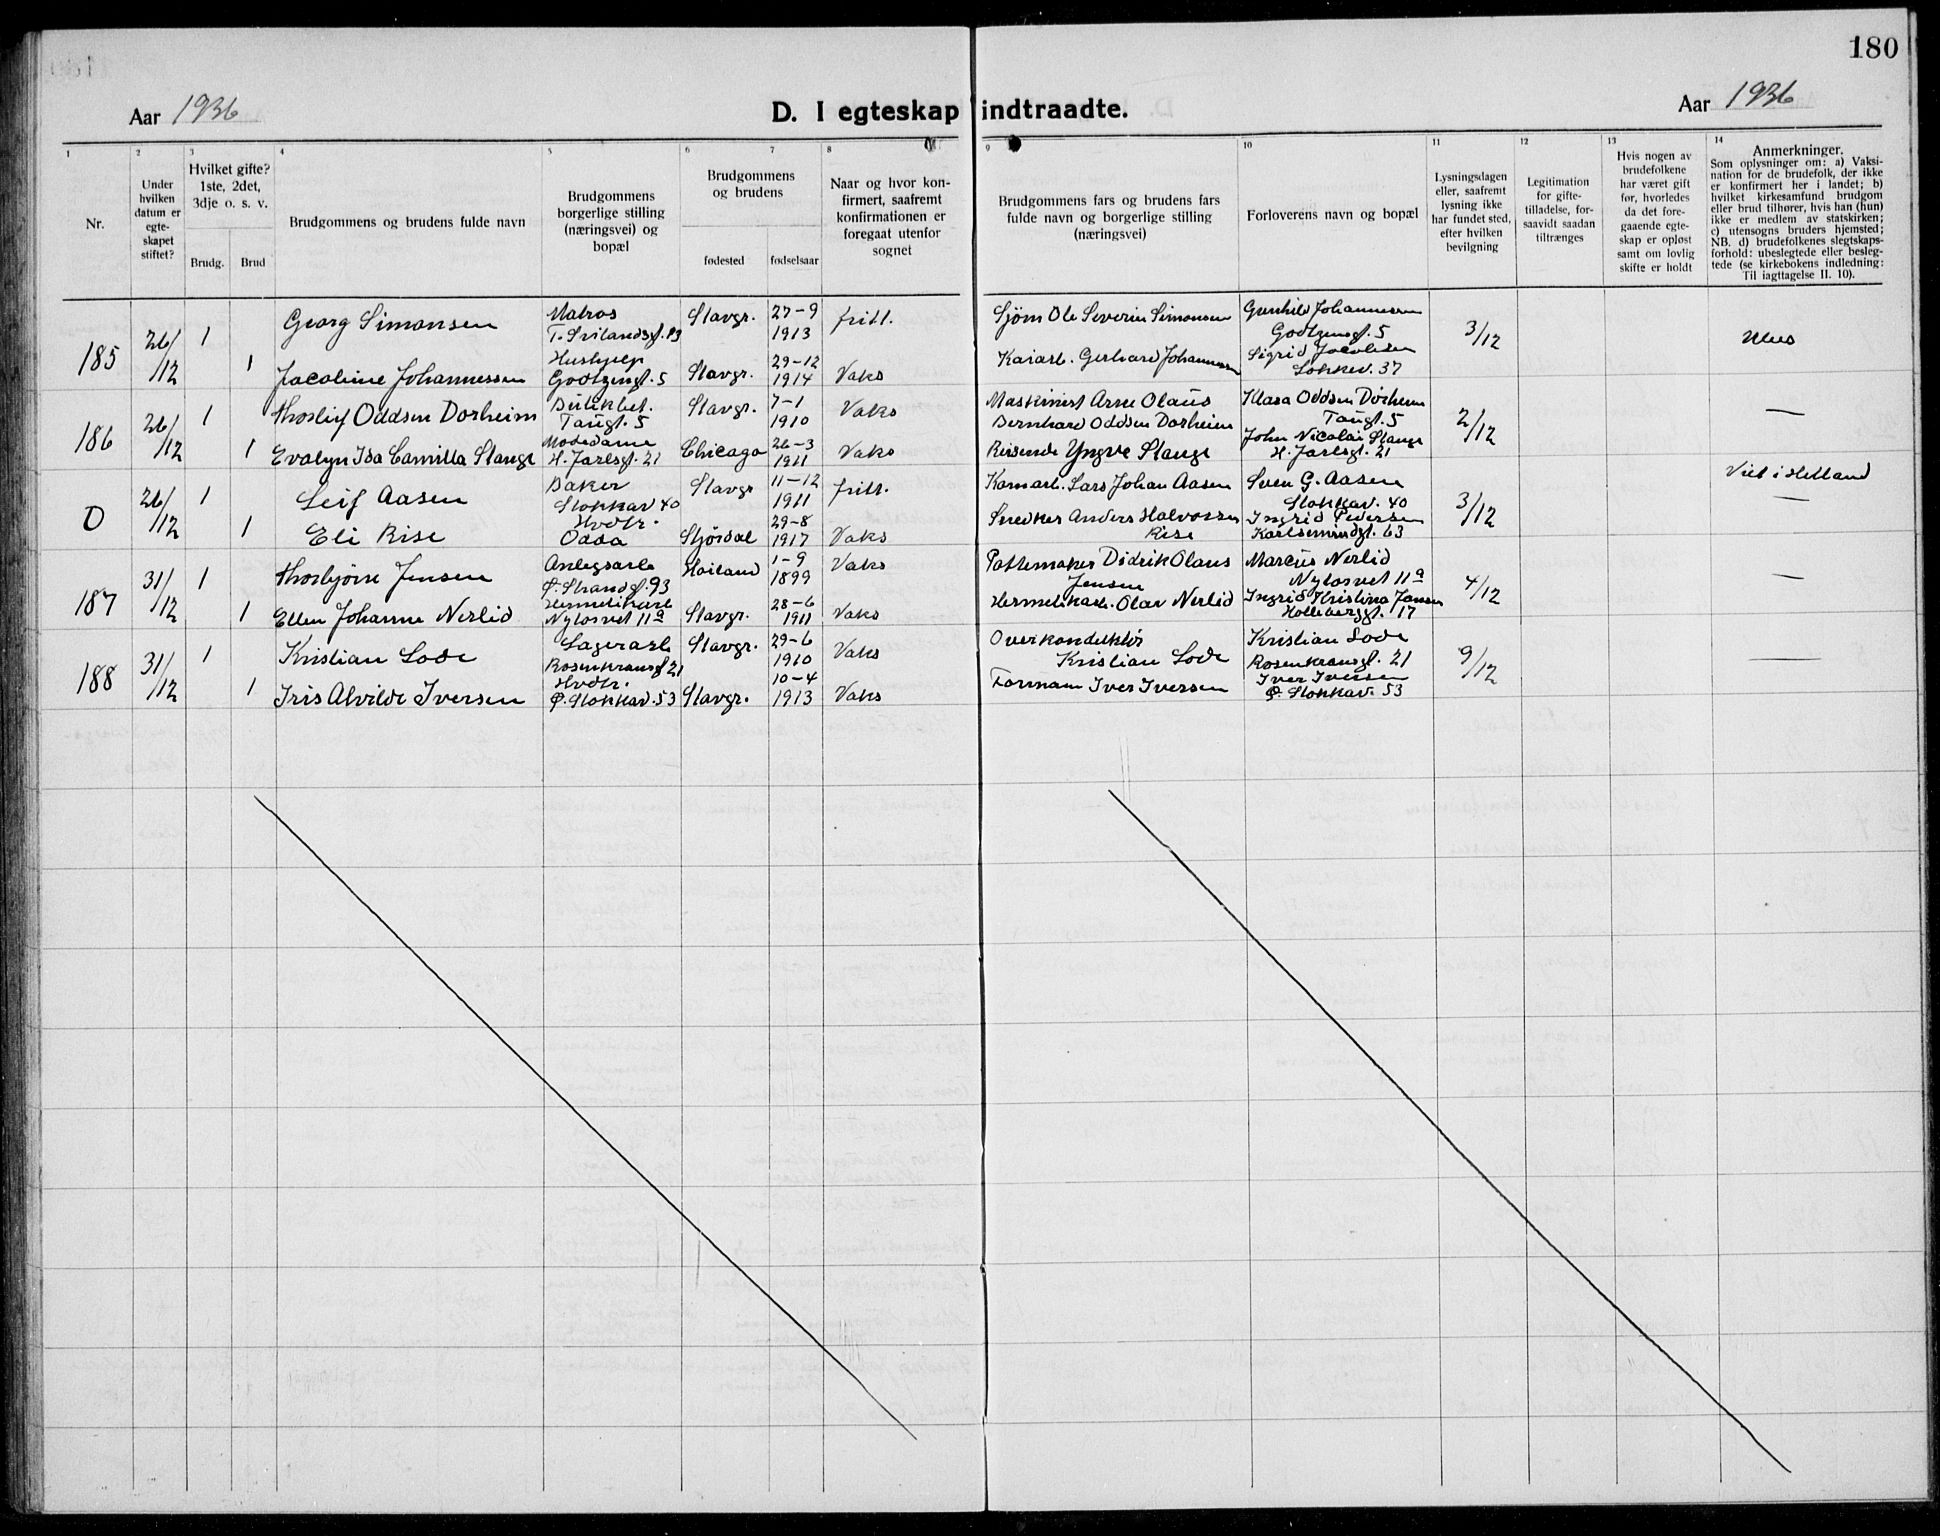 180
Aar 1936
D. I egteskap indtraadte.
Aar 1936
1 2 3 4 5 6 7 8 9 10 11 12 13 14
Nr.
Under hvilken datum er egte- skapet stiftet?
Hvilket gifte? 1ste, 2det, 3dje o. s. v.
Brudg. Brud
Brudgommens og brudens fulde navn
Brudgommens borgerlige stilling (næringsvei) og bopæl
Brudgommens og brudens
fødested fødselsaar
Naar og hvor kon- firmert, saafremt konfirmationen er foregaat utenfor sognet
Brudgommens fars og brudens fars fulde navn og borgerlige stilling (næringsvei)
Forloverens navn og bopæl
Lysningsdagen eller, saafremt lysning ikke har fundet sted, efter hvilken bevilgning
Legitimation for gifte- tilladelse, for- saavidt saadan tiltrænges
Hvis nogen av brudefolkene har været gift før, hvorledes da det fore- gaaende egte- skap er opløst samt om lovlig skifte er holdt
Anmerkninger.
Som oplysninger om: a) Vaksi- nation for de brudefolk, der ikke er konfirmert her i landet; b) hvilket kirkesamfund brudgom eller brud tilhører, hvis han (hun) ikke er medlem av statskirken; c) utensogns bruders hjemsted; NB. d) brudefolkenes slegtskaps- forhold: ubeslegtede eller besleg- tede (se kirkebokens indledning: Til iagttagelse II. 10).
185 26/12 1 Georg Simonsen Matros Stavgr. 27-9 1913 fritt. Sjöm Ole Severin Simonsen Gunhild Johannessen Godtzensgt. 5 3/12 Ubes
1 Jacobine Johannessen Hushjelp Godtzengt. 5 Stavgr. 29-12 1914 Vaks Kaiarb. Gerhard Johannessen Sigrid Jacobsen 37
186 26/12 1 Thorleif Oddsen Dorheim Butikbet. Taugt. 5 Stavgr. 7-1 1910 Vaks Maskinist Arne Olaus Bernhard Oddsen Dorheim Klara Oddsen Dorheim Taugt. 5 2/12 —
1 Evalyn Isa Camilla Stange Modedame H. Jarlsgt. 21 Chicago 26-3 1911 Vaks Reisende Yngve Stange John Nicolai Stange H. Jarlsgt. 21
0 26/12 1 Leif Aasen Baker Stokkav 40 Stavgr 11-12 1911 fritt. Komarb. Lars Johan Aasen Sven G. Aasen Stokkav. 40 3/12 Viet i Hetland —
1 Eli Rise Hvdtr. Odda Stjördal 29-8 1917 Vaks Snedker Anders Halvorsen Rise Ingrid Pedersen Karlsemindgt. 63
187 31/12 1 Thorbjörn Jensen Anlegsarb Ö. Strandgt. 93 Höiland 1-9 1899 Vaks Pottemaker Didrik Olaus Jensen Marcus Nerlid Nylosvet 11a 4/12 —
1 Ellen Johanne Nerlid Hermetikarb Nylosvet 11a Stavgr. 28-6 1911 Vaks Hermetikarb. Olav Nerlid Ingrid Kristina Jansen Holleberggt. 17
188 31/12 1 Kristian Lode Lagerarb Rosenkransgt 21 Stavgr. 29-6 1910 Vaks Overkonduktör Kristian Lode Kristian Lode Rosenkransgt. 21 9/12 —
1 Iris Alvilde Iversen Hvdtr. Ö. Stokkav. 53 Stavgr. 10-4 1913 Vaks Formann Iver Iversen Iver Iversen Ö. Stokkav. 53